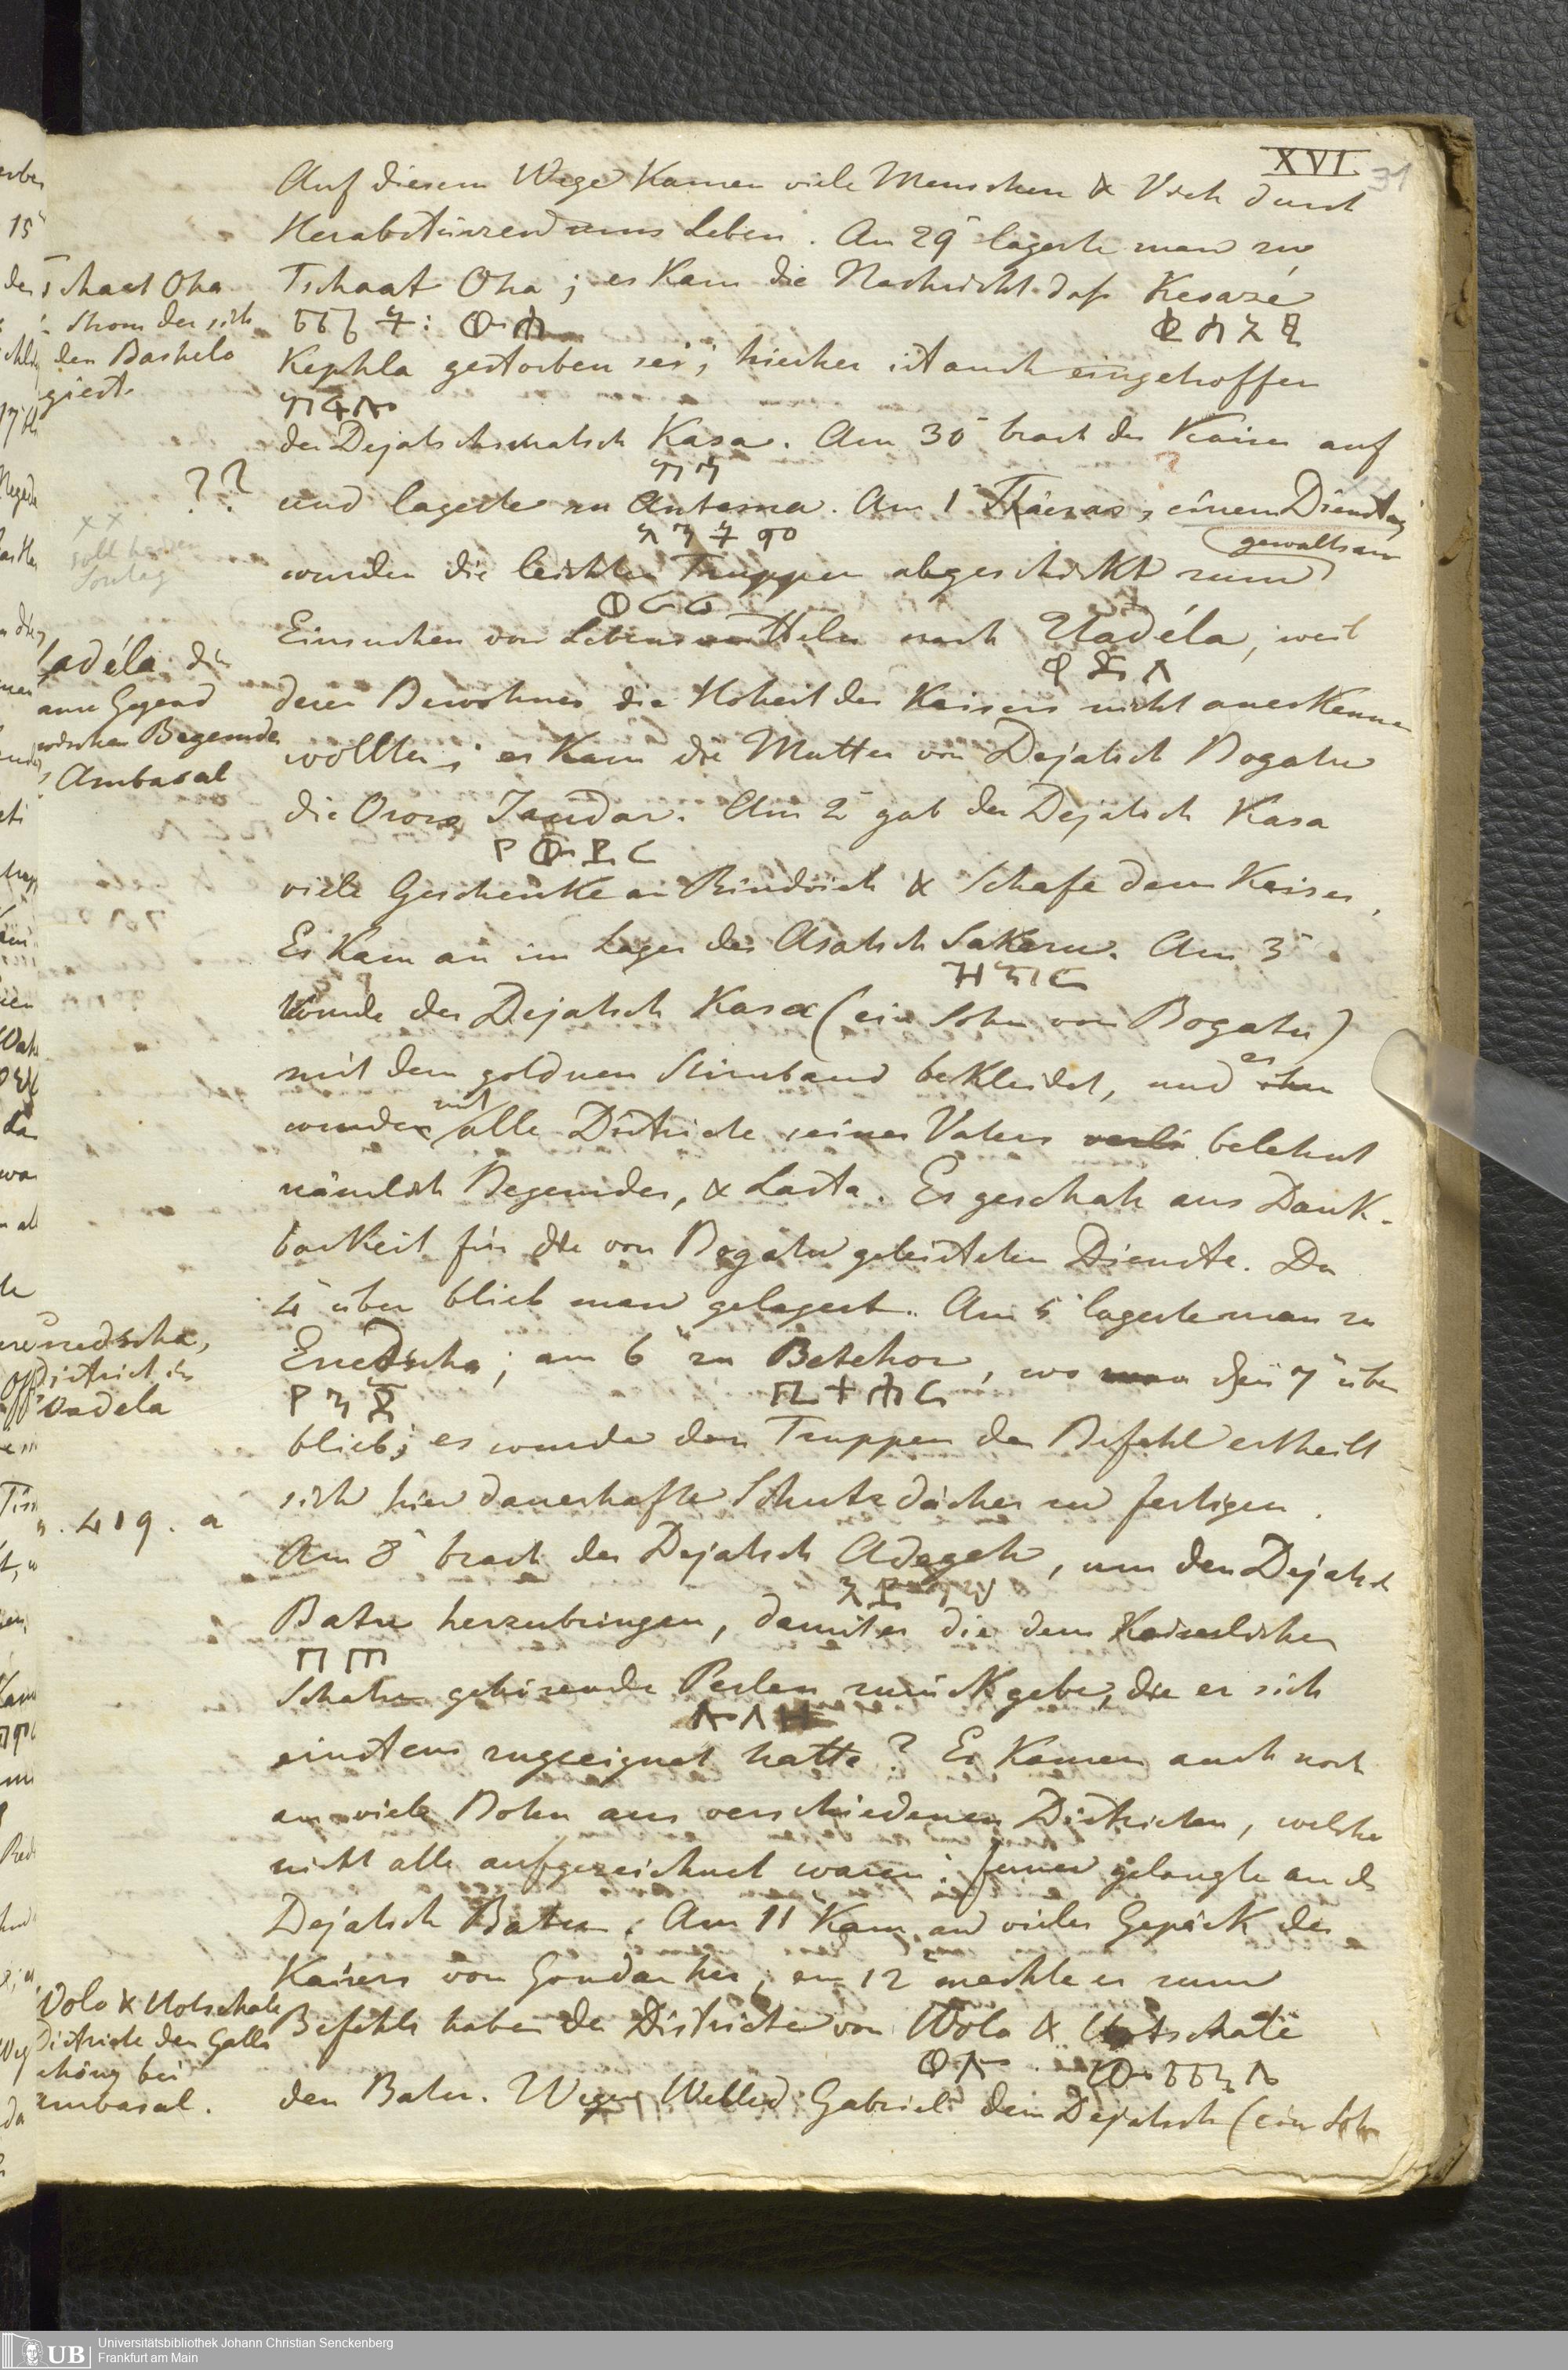 XVI.
31
Auf diesem Wege kamen viele Menschen & Vieh durch
Herabstürzen ums Leben. Am 29ͭ lagerte man zu
Tschaat Oha; es kam die Nachricht daß Kesazé
Kephla gestorben sei; hierher ist auch eingetroffen
der Dejatschmatsch Kasa. Am 30ͭ brach der Kaiser auf
ካሣ
und lagerte zu Antema. Am 1ͭ einem Dienstag
gewaltsam
wurden die leichten Truppen abgeschickt zum
Einsuchen von Lebensmitteln nach Uadéla, weil
deren Bewohner die Hoheit des Kaisers nicht anerkennen
wollten; es kam die Mutter von Dejatsch Bogatu
die Osoro Jaudar. Am 2ͭ gab der Dejatsch Kasa
viele Geschenke an Rindvieh & Schafe dem Kaiser.
Es kam an im Lager der Asatsch Sakaru. Am 3ͭ
wurde der Dejatsch Kasa (ein Sohn von Bogatu)
mit dem goldnen Stirnband bekleidet, und er ihm
wurde mit alle Districte seines Vaters verli belehnt
nämlich Begemder, & Lasta. Es geschah aus Dank-
barkeit für die von Bogatu geleisteten Dienste. Den
4ͭ über blieb man gelagert. Am 5ͭ lagerte man zu
Enedscha; am 6ͭ zu Betehor, wo man den 7ͭ über
የንጃ
blieb; es wurde den Truppen der Befehl ertheilt
sich hier dauerhafte Schutzdächer zu fertigen.
Am 8ͭ brach der Dejatsch Adegeh, um den Dejatsch
Batu herzubringen, damit er die dem Kaiserlichen
ባቱ
Schatze gehörende Perlen zurückgebe, die er sich
einstens zugeeignet hatte? Es kamen auch noch
an viele Boten aus verschiedenen Districten, welche
nicht alle aufgezeichnet waren. Ferner gelangte an der
Dejatsch Batu. Am 11ͭ kam an vieles Gepäck des
Kaisers von Gondar her, am 12ͭ machte er zum
Befehls haber der Districte von Wolo & Uotschale
ወሎ
den Batu. Wegen Welled Gabriel dem Dejatsch (ein Sohn
Tschaat Oha
Strom der sich
den Baschelo
giest
??
xx
soll heissen
Sontag
Uadéla der
Gegend
zwischen Begemder
& Ambasal
Enedscha,
District in
Uadela
419. a
Wolo & Uotschale
Districte den Galla
gehörig bei
Ambasal.
UB Universitätsbibliothek Johann Christian Senckenberg
Frankfurt am Main